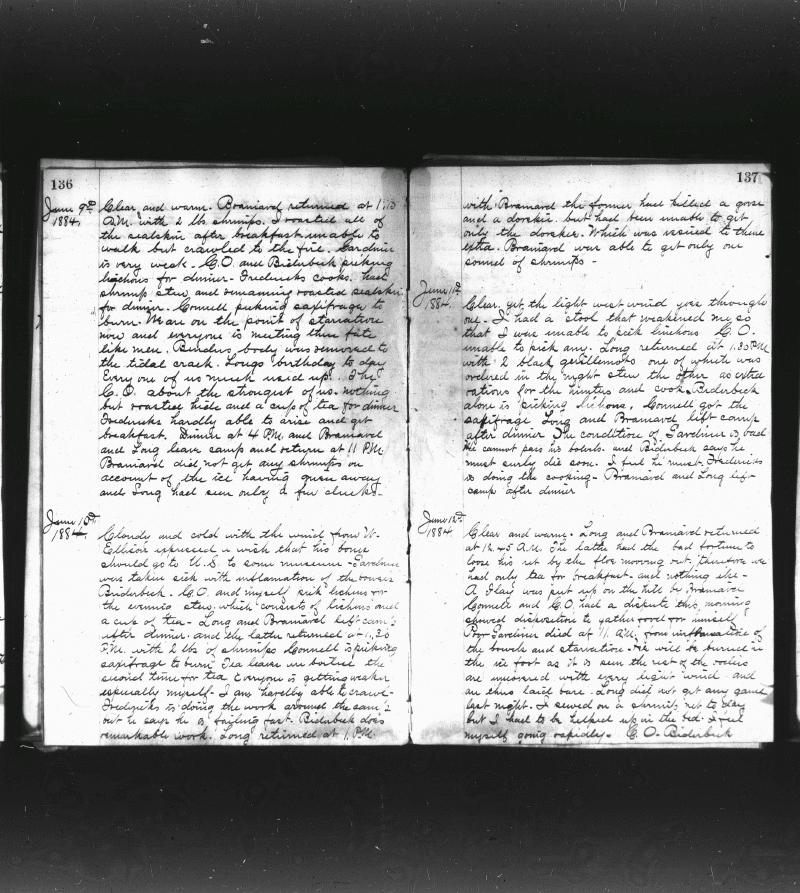 136
June 9th 1884.
Clear and warm. Brainard returned at 1.15
A.M. with 2 lbs shrimps. I roasted all of
the sealskin after breakfast unable to
walk but crawled to the fire. Gardner
is very weak - C.O. and Biderbeck picking
lichens for dinner - Fredericks cooks. had
shrimp stew and remaining roasted sealskin
for dinner. Connell picking saxifrage to
burn. Man on the point of starvation
now and everyone is meeting their fate
like men. body was removed to
the tidal crack. Longs birthday to day
Every one of us much used up. The
C.O. about the strongest of us. nothing
but roasted hide and a cup of tea for dinner
Fredericks hardly able to arise and get
breakfast. Dinner at 4 P.M. and Brainard
and Long leave camp and return at 11 P.M.
Brainard did not get any shrimps on
account of the ice having given away
and Long had seen only a few ducks -
June 10th 1884.
Cloudy and cold with the wind from W.
Ellison expressed a wish that his bones
should go to U.S. to some museum - Gardner
was taken sick with inflamation of the bowels
Biderbeck. C.O. and myself pick lichens for
the evening stew, which consists of lichens and
a cup of tea - Long and Brainard left camp
after dinner. and the latter returned at 11.20
P.M. with 2 lbs of shrimps Connell is picking
saxifrage to burn. Tea leaves in boiled the
second time for tea. Everyone is getting weaker
especially myself - I am hardly able to crawl -
Fredericks is doing the work around the camp
but he says he is failing fast. Biderbeck does
remarkable work. Long returned at 1. P.M.
137
with Brainard the former had killed a
and a dovekie. but had been unable to get
only the dovekie. Which was issued to them
extra. Brainard was able to get only one
of shrimps -
June 11th 1884.
Clear. yet the light west wind goes through
us - I had a stool that weakened me so
that I was unable to pick lichens C.O.
unable to pick any. Long returned at 1.30 P.M.
with 2 black guillemots one of which was
ordered in the night stew the other as extra
rations for the hunters and cook. Biderbeck
alone is picking lichens. Connell got the
saxifrage Long and Brainard left camp
after dinner The condition of Gardner is bad
He cannot pass his bowels. and Biderbeck says he
must surly die soon. I feel he must. Fredericks
is doing the cooking - Brainard and Long left
camp after dinner
June 12th 1884.
Clear and warm. Long and Brainard returned
at 12.45 A.M. The latter had the bad fortune to
loose his net by the floe moving out; therefore we
had only tea for breakfast - and nothing else -
A flag was put up on the hill by Brainard
Connell and C.O. had a dispute this morning
showed disposition to gather food for himself
Poor Gardner died at 11 A.M. from inflamation of
the bowels and starvation - He will be buried in
the ice foot as it is seen the rest of the bodies
are uncovered with every light wind - and
are thus laid bare - Long did not get any game
last night. I sewed on a shrimp net to day
but I had to be helped up in the bed. I feel
myself going rapidly - C.O. - Biderbeck